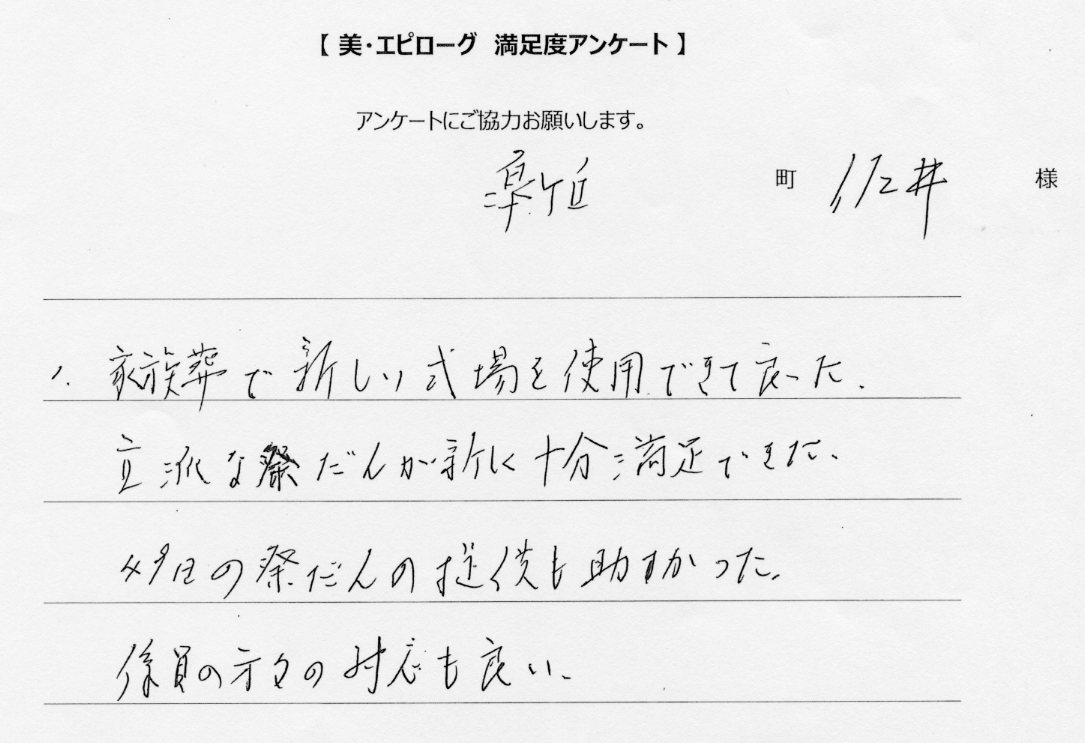 【 美・エピローグ 満足度アンケート 】
アンケートにご協力お願いします。
ケ丘 町 井 様
1. 家族葬で新しい式場を使用できて良った.
立派な祭だんが新しく十分満足できた.
49日の祭だんの提供も助すかった.
係員の方々の対応も良い.